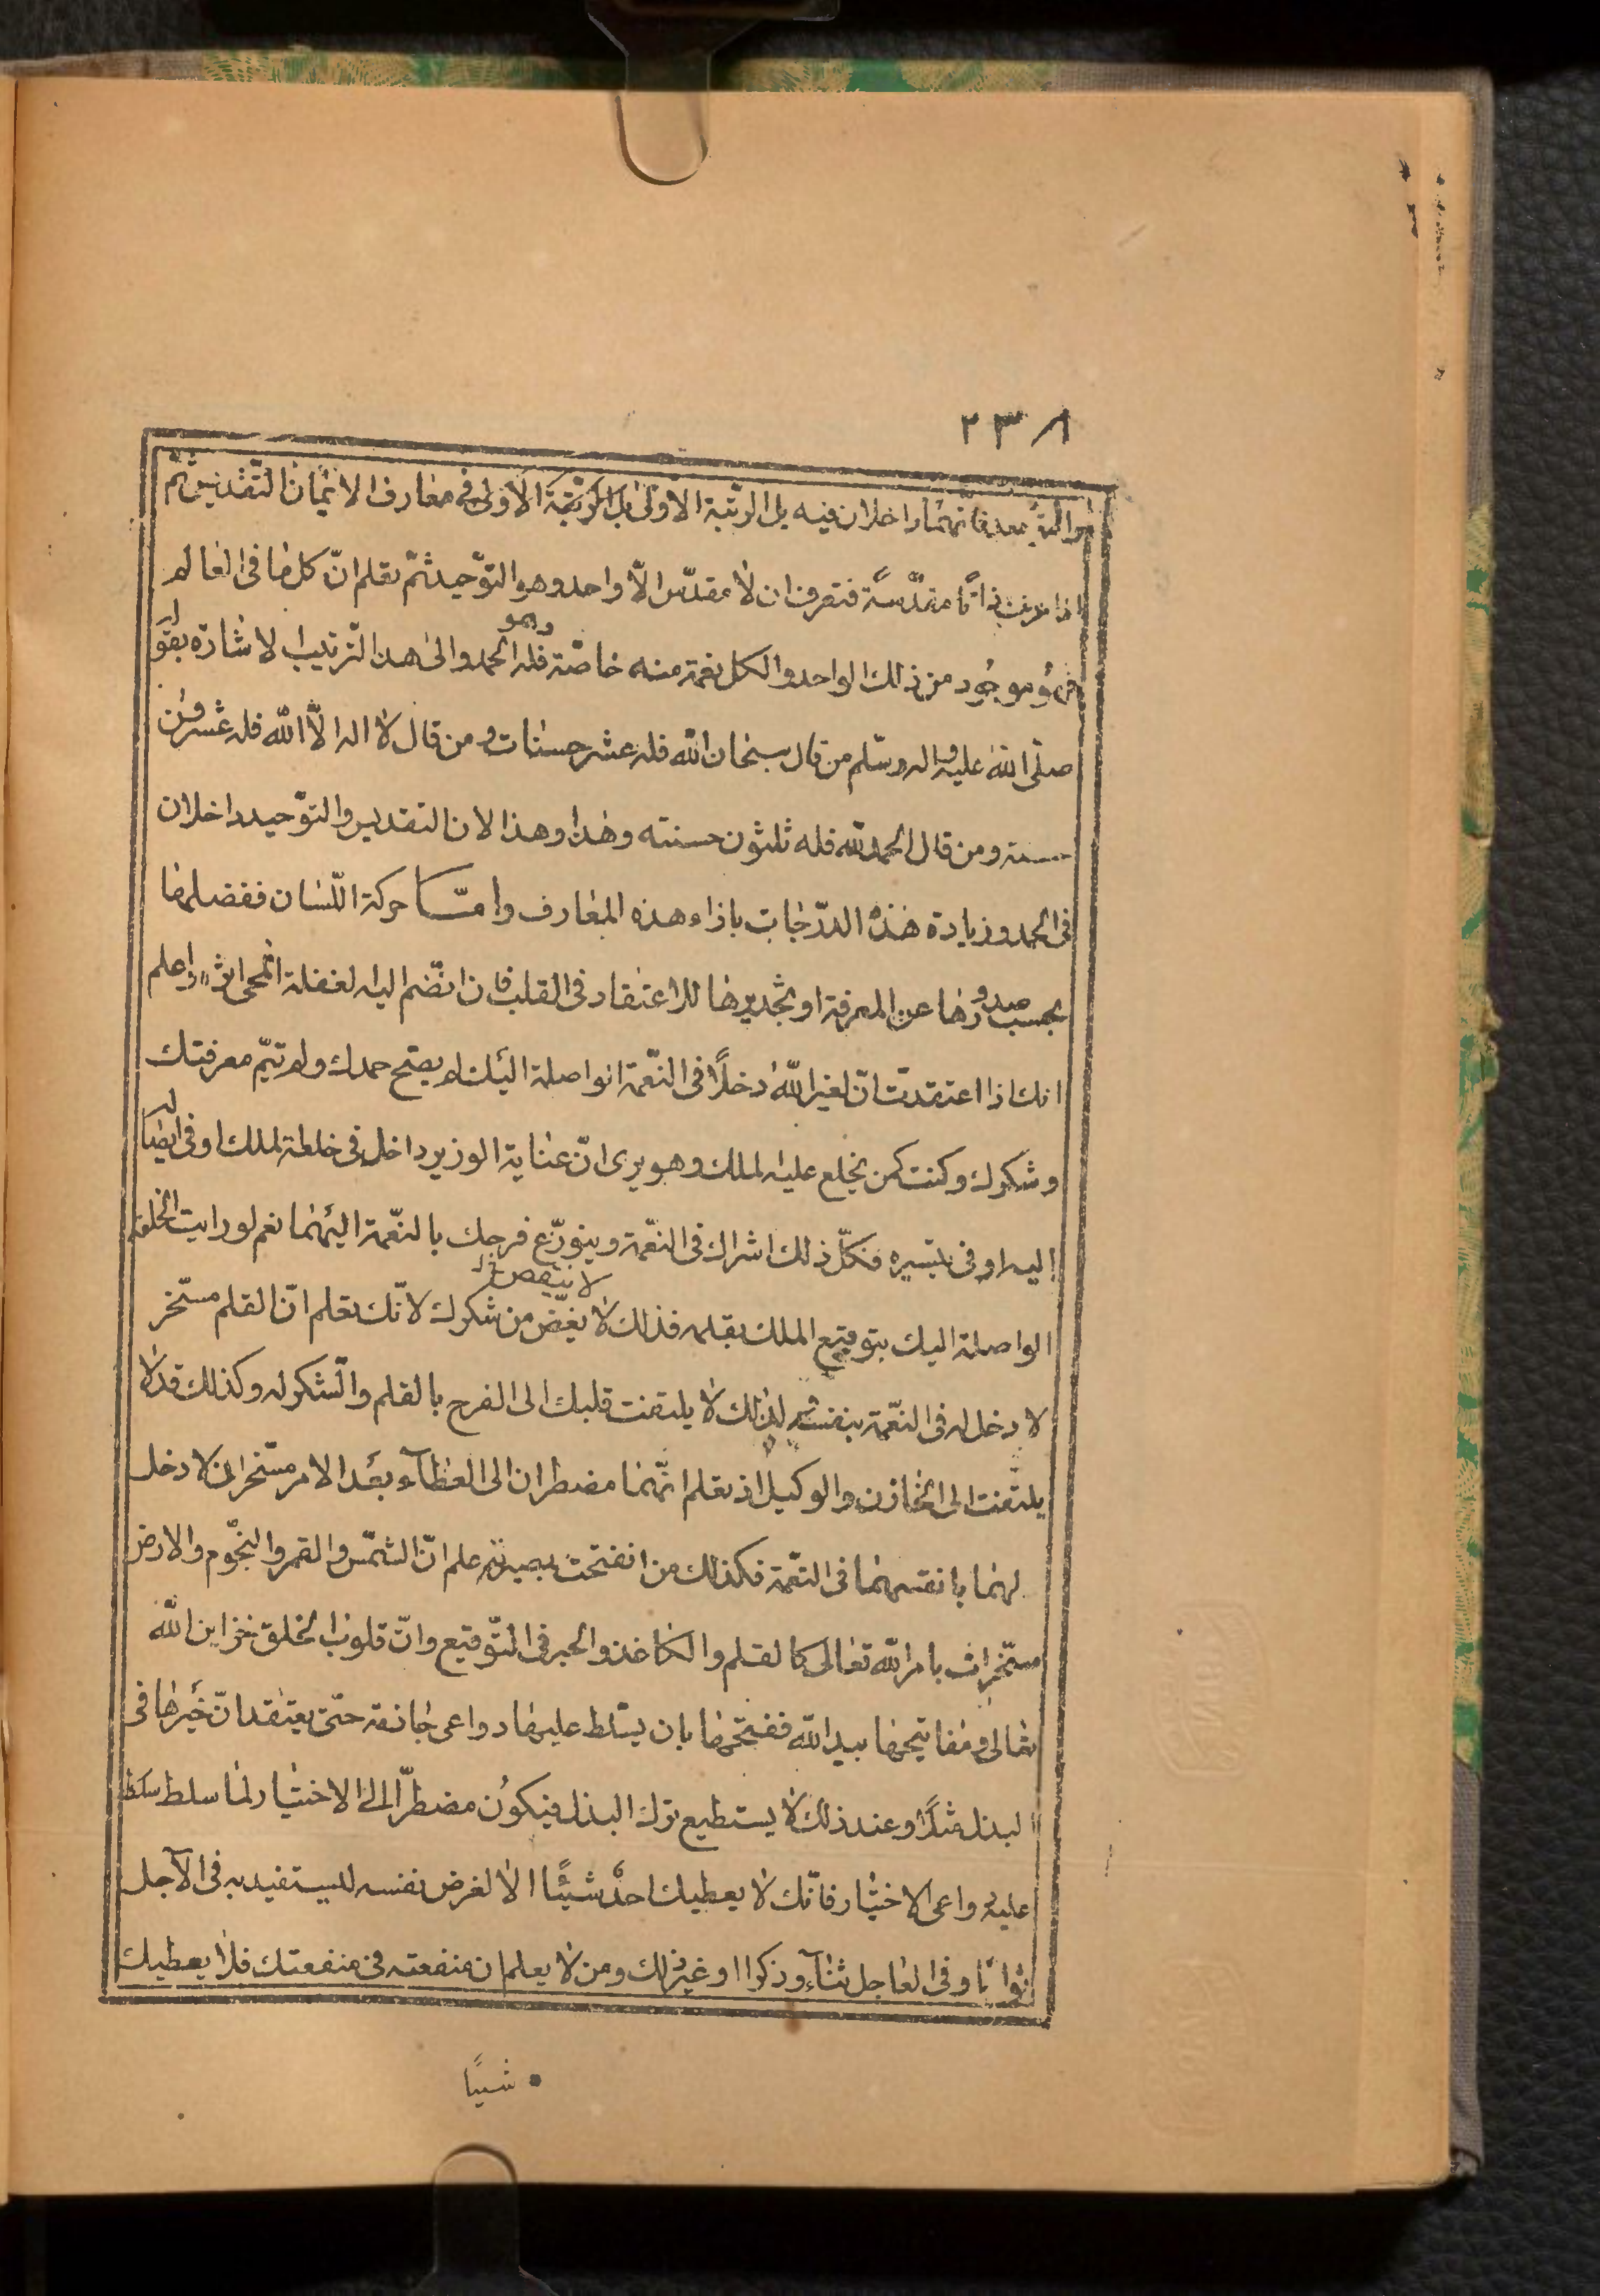 ٢٣٨
والتوحيد فانهما داخلان فيه بل الرتبة الاولى بل الرتبة الاولى فى معارف الايمان التقديس ثم
اذا عرفت ذاتًا مقدّسةً فتعرف ان لا مقدّس الّا واحد وهو التوّحيد ثمّ تعلم انّ كل ما فى العالم
فهو موجود من ذلك الواحد والكل نعمة منه خاصّة فله الحمد والى هذا الترتيب الاشارة بقوله
وهو
صلّى الله عليه واله وسّلم من قال سبحان الله فله عشر حسنات ومن قال لا اله الّا الله فله عشرون
حسنة ومن قال الحمد لله فله ثلثون حسنته وهذا وهذا لان التقديس والتوّحيد داخلان
فى الحمد وزيادة هذه الدرّجات باذاء هذه المعارف وامّا حركة اللّسان ففضلها
بحسب صدورها عن المعرفة او تجديرها للاعتقاد فى القلب فان انضّم اليه لغفلة انمحى اثر واعلم
انك اذا اعتقدت انّ لغير اللّه دخلًا فى النعّمة الواصلة اليك لم يصّح حمدك ولم تتمّ معرفتك
وشكرك وكنت كمن يخلع عليه لملك وهو يرى انّ عناية الوزير داخل فى خلعة لملك او فى ايصاله
اليه او فى تيسيره فكلّ ذلك اشراك فى النعّمة ويتوزّع فرحك بالنعّمة اليهما نعم لو رايت الخلعة
لا ينقص خ‌ل
الواصلة اليك بتوقيع الملك بقلمه فذلك لا يغضّ من شكرك لانّك تعلم انّ القلم مسّخر
لا دخل له فى النعّمة بنفسه لذلك لا يلتفت قلبك الى الفرح بالقلم والشّكر له وكذلك قد لا
يلتفت الى الخازن والوكيل اذ تعلم انّهما مضطران الى العطآء بعد الامر مسّخران لا دخل
لهما بانفسهما فى النعّمة فكذلك من انفتحت بصيرته علم انّ الشمّس والقمر والنجّوم والارض
مسّخرات بامر اللّه تعالى كالقلم والكاغذ والحبر فى التوّقيع وانّ قلوب الخلق خزاين اللّه
تعالى ومفاتيحها بيد اللّه ففتحها بان يسّلط عليها دواعى جازمة حتّى يعتقد انّ خيرها فى
البذل مثلًا وعند ذلك لا يستطيع ترك البذل فيكون مضطرّا الى الاختيار لما سلط سلط
عليه دواعى الاختيار فانّك لا يعطيك احدٌ شيئًا الا لغرض نفسه ليستفيد به فى الآجل
ثوابًا وفى العاجل ثنآء وذكرا او غير ذلك ومن لا يعلم ان منفعته فى منفعتك فلا يعطيك
شيئًا